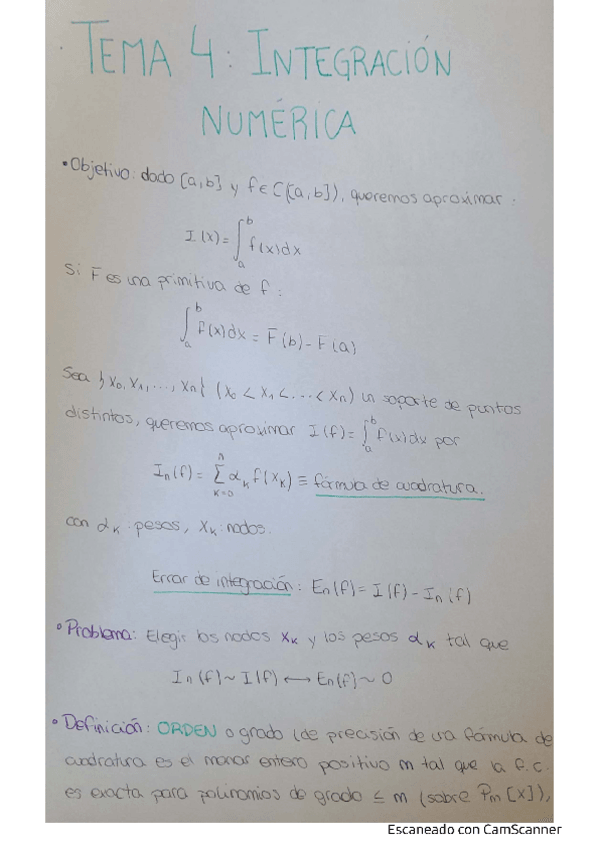 TEMA 4: INTEGRACIÓN
NUMÉRICA
• Objetivo: dado [a,b] y f∈C([a,b]), queremos aproximar:
I(x)=∫_a^b f(x)dx
Si F es una primitiva de f:
∫_a^b f(x)dx = F(b)-F(a)
Sea {x₀, x₁, ..., xₙ} (x₀<x₁<...<xₙ) un soporte de puntos
distintos, queremos aproximar I(f)=∫_a^b f(x)dx por
Iₙ(f)= Σ_{k=0}^n α_k f(x_k) ≡ fórmula de cuadratura.
con α_k: pesos, x_k: nodos.
Error de integración: Eₙ(f)= I(f)-Iₙ(f)
• Problema: Elegir los nodos x_k y los pesos α_k tal que
Iₙ(f)~I(f) ⟷ Eₙ(f)~0
• Definición: ORDEN o grado (de precisión de una fórmula de
cuadratura es el manor entero positivo m tal que la f.c.
es exacta para polinomios de grado ≤ m (sobre Pm[x]),
Escaneado con CamScanner